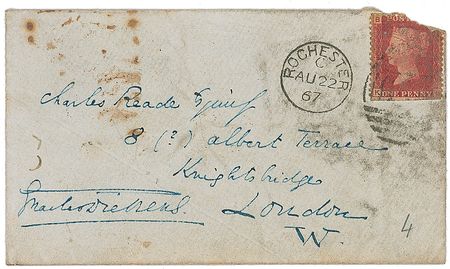 ROCHESTER
C
AU 22
67
ONE PENNY
Charles Reade Esquire
8 (?) Albert Terrace
Knightsbridge
Charles Dickens.
London
W.
4